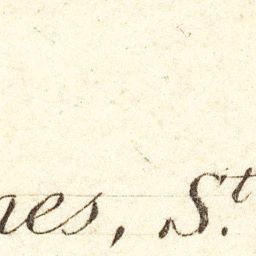 nes, St.